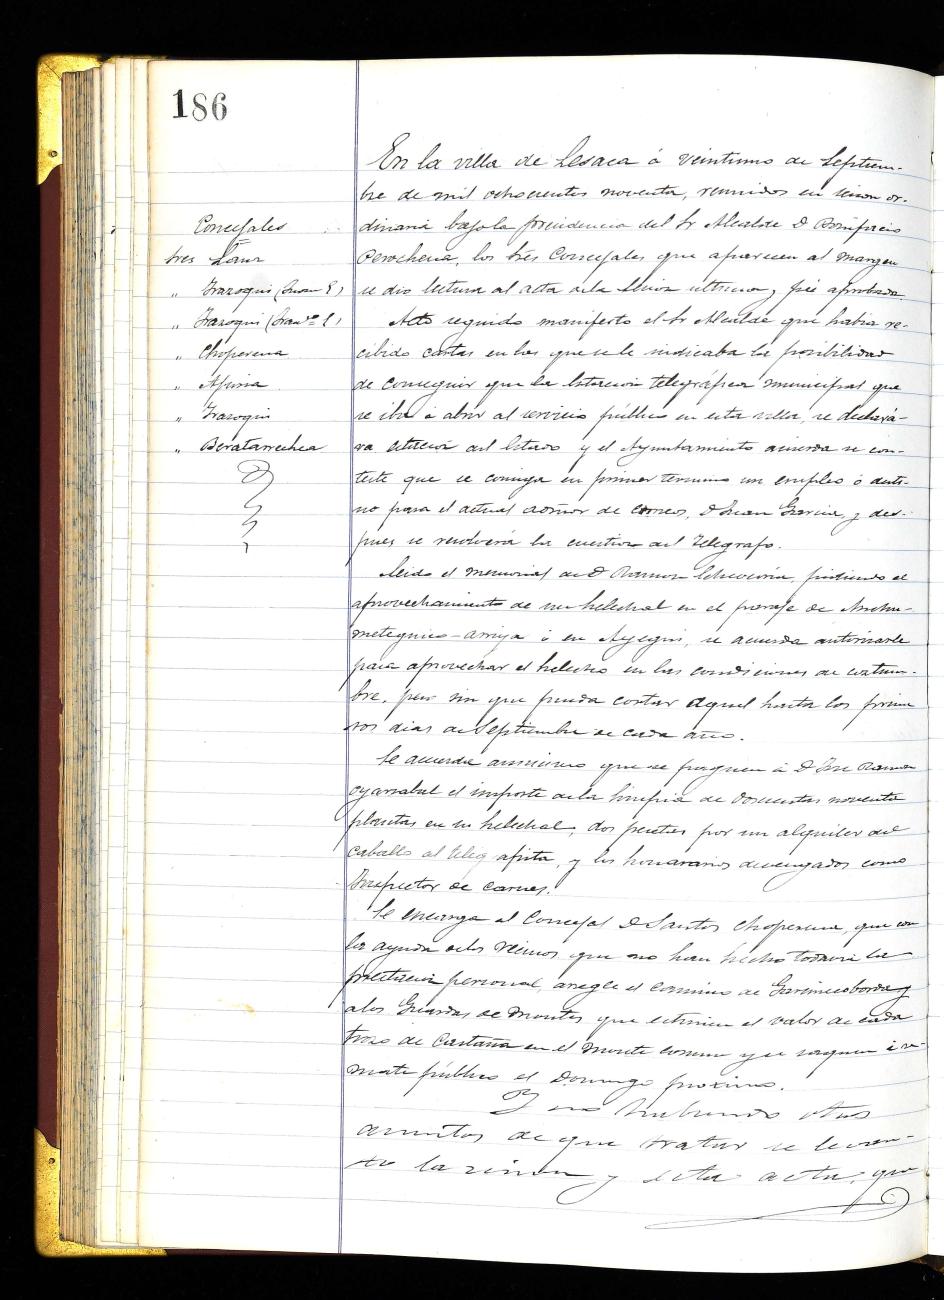 186
En la villa de Lesaca á veintiuno de Septiem-
bre de mil ochocientos noventa, reunidos en sesion or-
dinaria bajo la presidencia del Sr Alcalde D Bonifacio
Perochena, los Sres Concejales que aparecen al margen
se dio lectura al acta de la última y fué aprobada.
Concejales
Sres Sanz
" Irazoqui (Juan E)
" Irazoqui (Fran.co)
" Choperena
" Apiria
" Irazoqui
" Beratarrechea
Acto seguido manifesto el Sr Alcalde que habia re-
cibido cartas en las que se le indicaba la posibilidad
de conseguir que la Estacion telegráfica municipal que
se iba á abrir al servicio público en esta villa, se declará-
ra estacion del Estado y el Ayuntamiento acuerda se con-
teste que se consiga en primer termino un empleo ó desti-
no para el actual admor de correos, D Juan Garcia, y des-
pues se resolverá la cuestion del Telegrafo.
Leido el memorial de D Ramon Echeverria, pidiendo el
aprovechamiento de un helechal en el paraje de
ó en se acuerda autorizarle
para aprovechar el helecho en las condiciones de costum-
bre, pero sin que pueda cortar aquel hasta los prime
ros dias de Septiembre de cada año.
Se acuerda asimismo que se paguen á D José Ramon
Oyarzabal el importe de la limpia de doscientas noventa
plantas en su helechal, dos pesetas por un alquiler del
caballo al telegrafista, y los honorarios devengados como
Inspector de carnes.
Se encarga al Concejal D Santos Choperena, que con
la ayuda de los vecinos que no han hecho todavia la
prestacion personal, arregle el camino de y
a los Guardas de montes que estimen el valor de cada
trozo de Castaña en el monte comun y se saquen á re-
mate público el Domingo proximo.
Y no habiendo otros
asuntos de que tratar se levan-
tó la sesion y esta acta, que